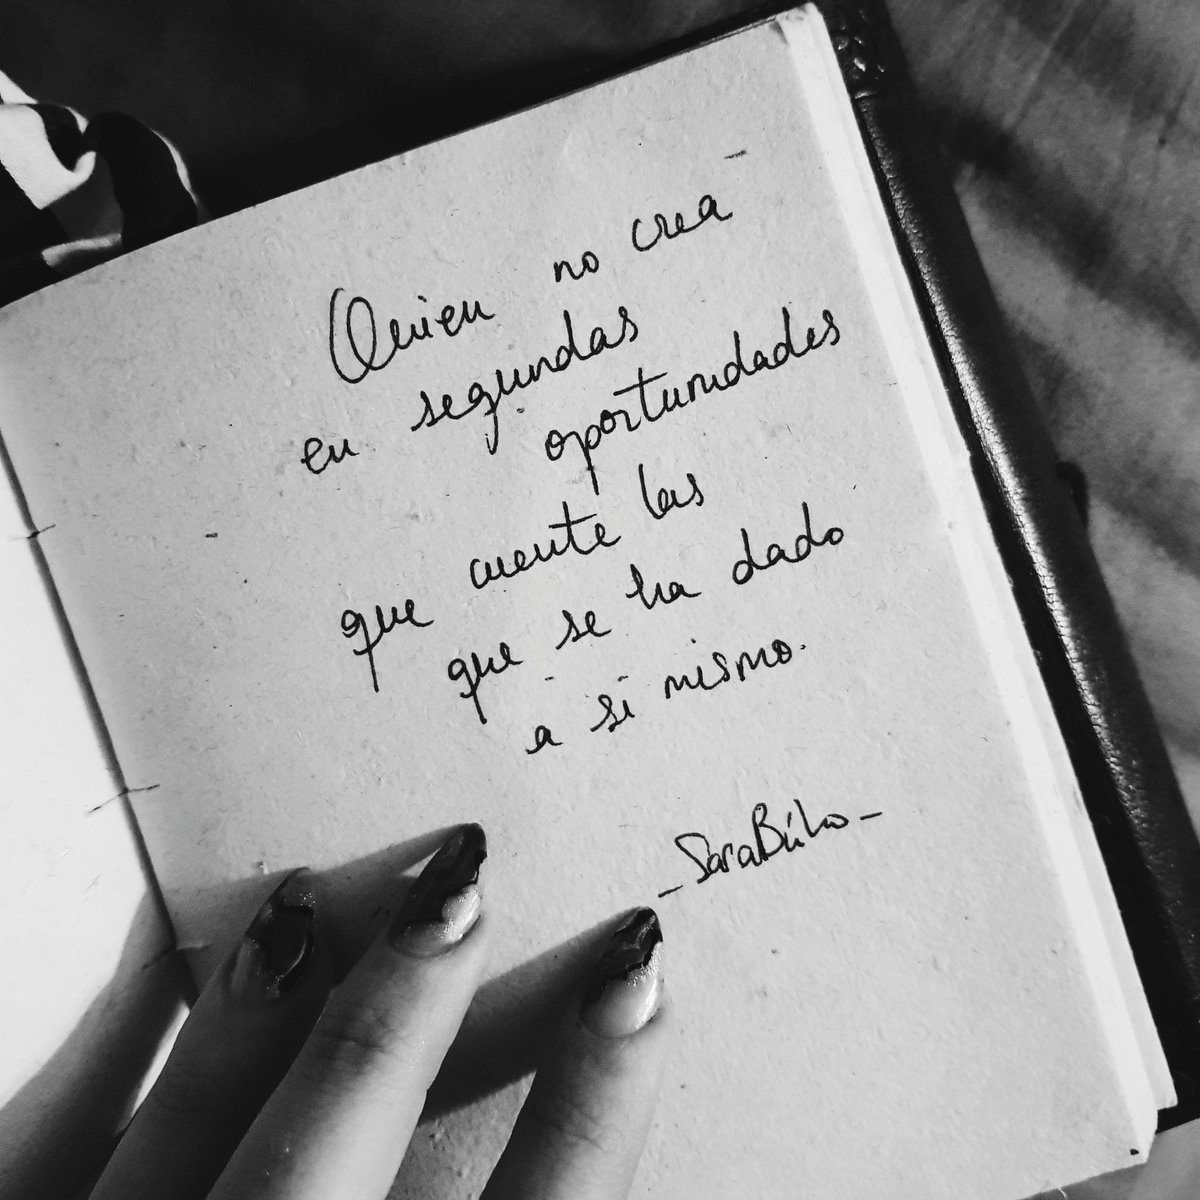 Quien no crea
en segundas
oportunidades
que cuente las
que se ha dado
a si mismo.
_SaraBúho_